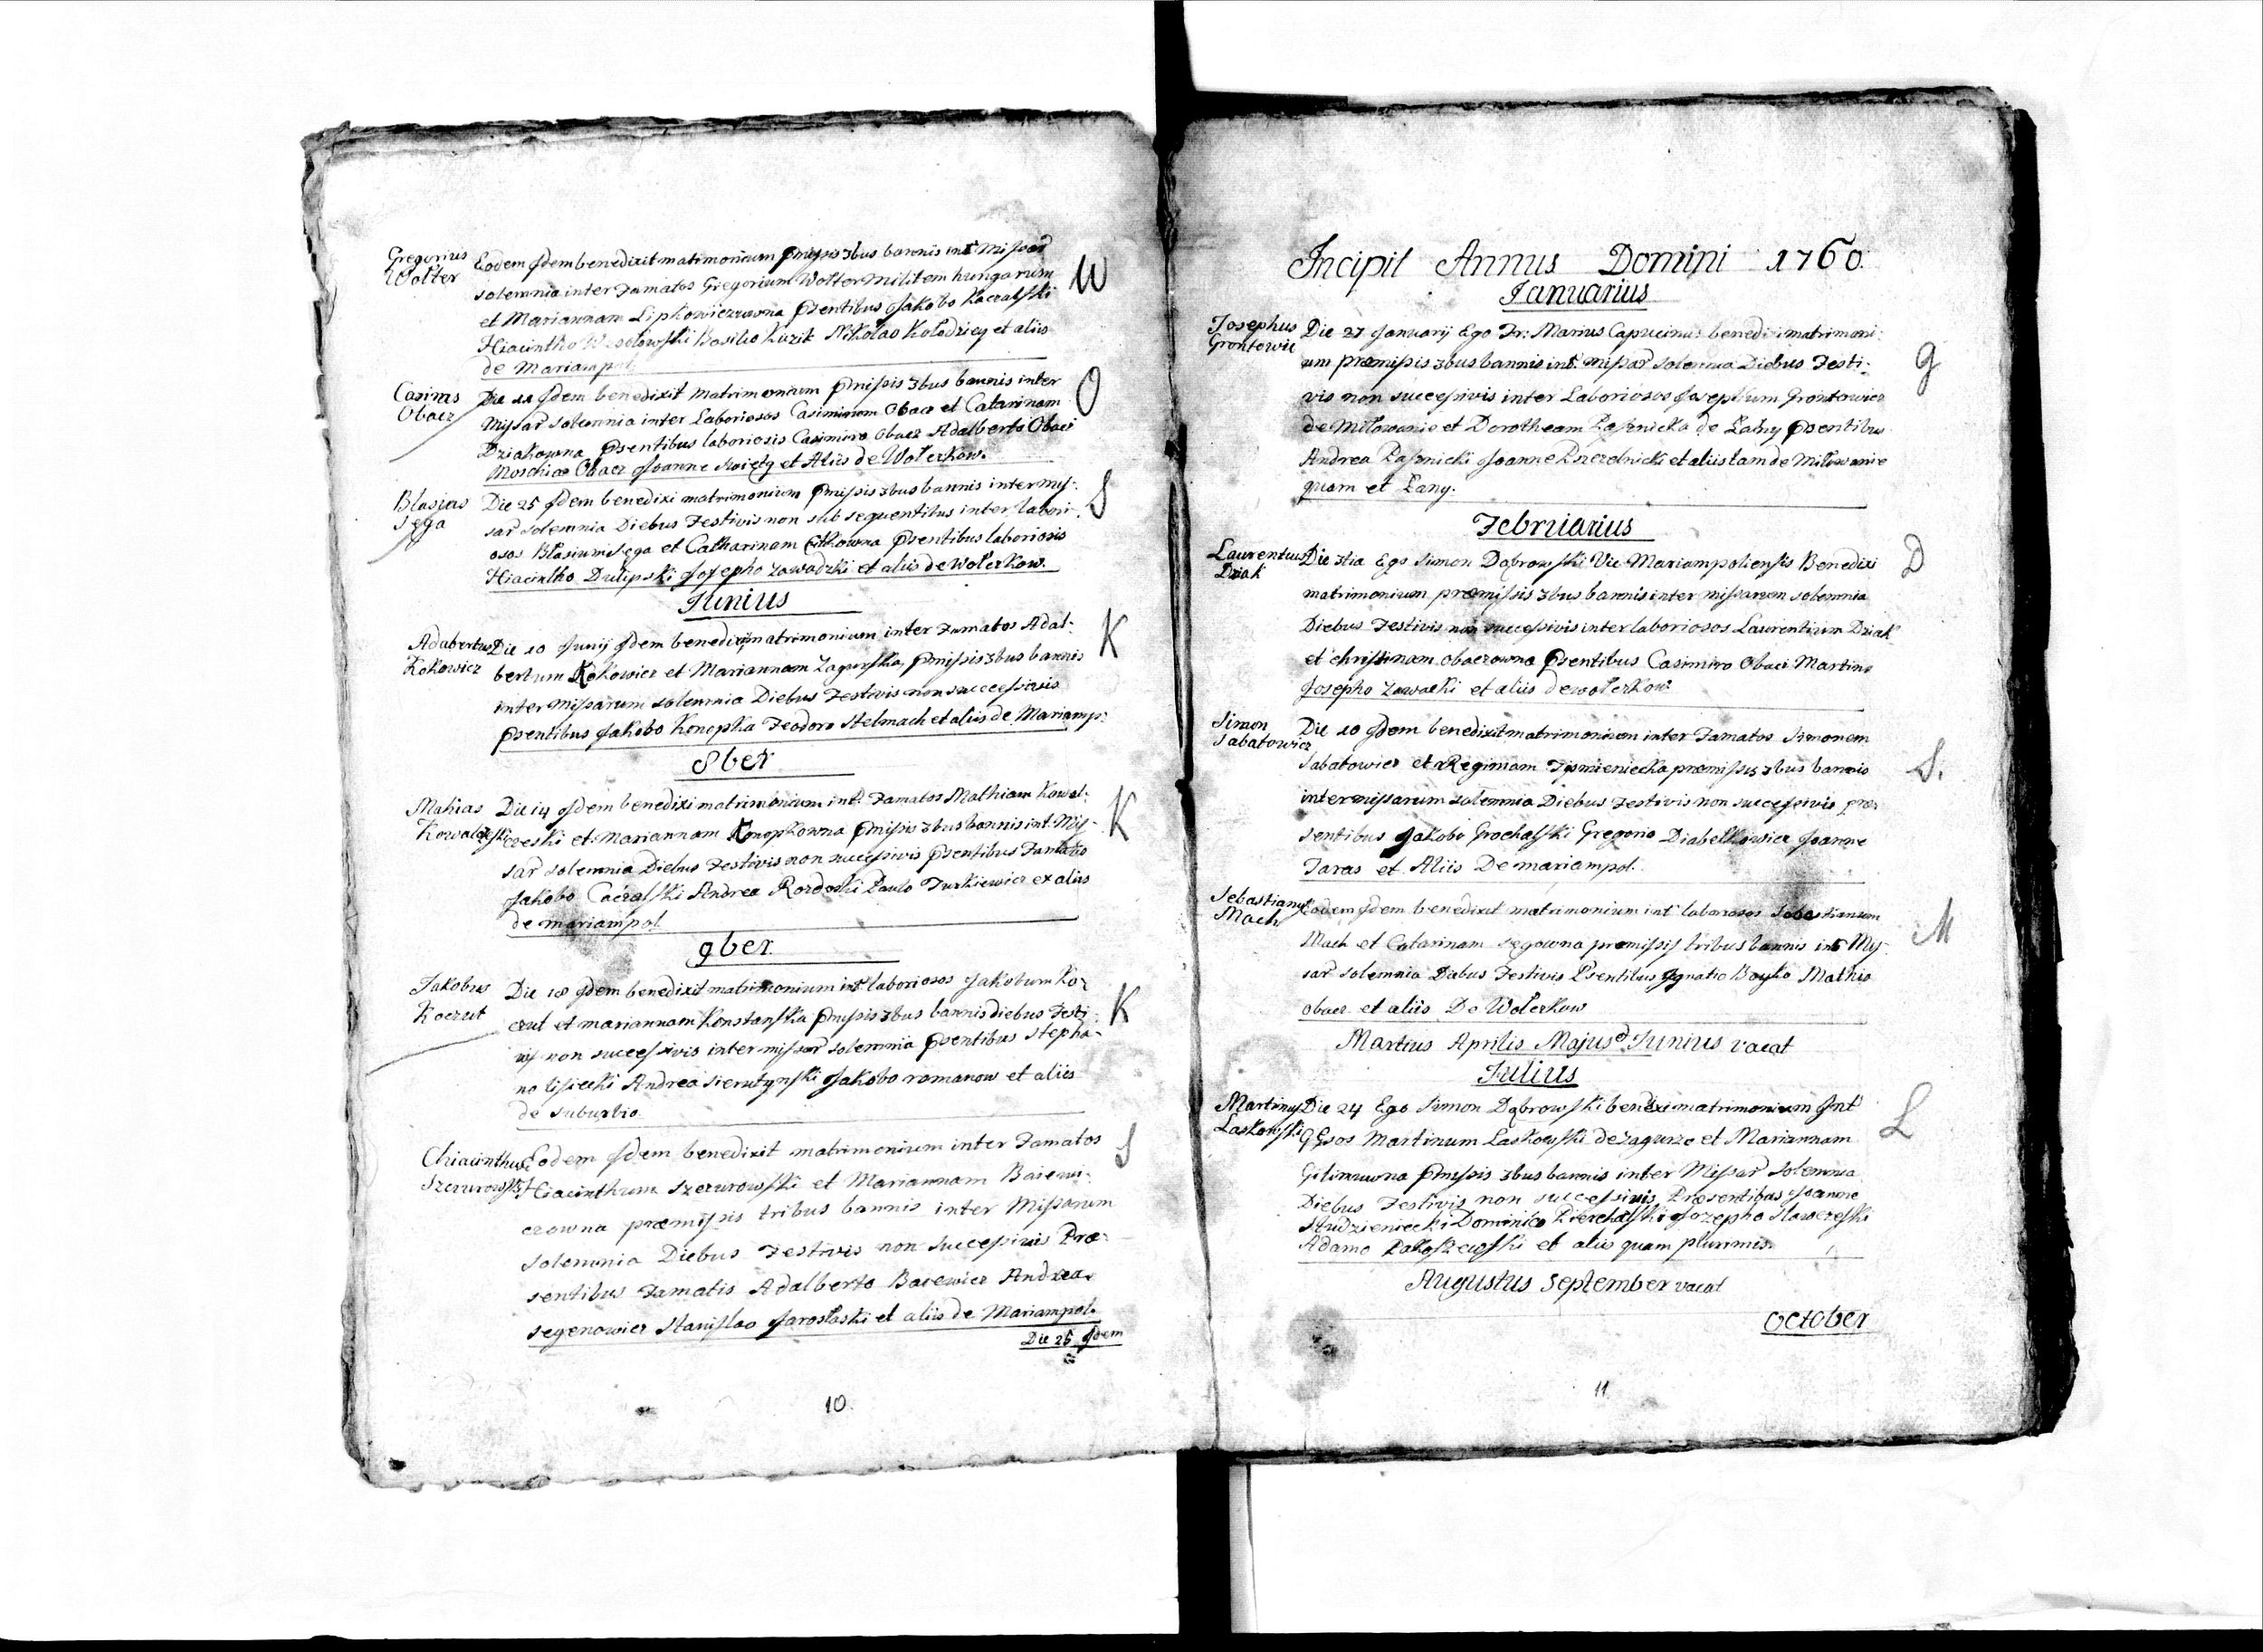 Gregorius
Wolter
Eodem Idem benedixit matrimonium pmissis 3bus bannis int Missar
solemnia inter Famatos Gregorium Wolter Militem hungarum
et Mariannam Lipkowiczowna psentibus Jakobo Kaczalski
Hiacintho Basilio Kuzik Nikolao Kolodziey et aliis
de Mariampol
W
Casimirus
Obacz
Die 11 Idem benedixit Matrimonium pmissis 3bus bannis inter
Missar solemnia inter Laboriosos Casimirum Obacz et Catarinam
Dziakowna psentibus laboriosis Casimiro Obacz Adalberto Obacz
Obacz Joanne et Aliis de Wolczkow.
O
Blasius
Sega
Die 25 Idem benedixi matrimonium pmissis 3bus bannis inter mis-
sar solemnia Diebus Festivis non sub sequentibus inter labori-
osos Blasium Sega et Catharinam psentibus laboriosis
Hiacintho Dulipski Josepho Zawadzki et aliis de Wolczkow.
S
Junius
Adabertus
Kokowicz
Die 10 Junij Idem benedixi matrimonium inter Famatos Adal-
bertum Kokowicz et Mariannam Zagurska, pmissis 3bus bannis
inter Missarum solemnia Diebus Festivis non successivis
psentibus Jakobo Konopka Teodoro Stelmach et aliis de Mariamp:
K
8ber
Mahias
Kowalczeski
Die 14 Idem benedixi matrimonium int. Famatos Mathiam Kowal-
czeski et Mariannam Konopkowna pmissis 3bus bannis int. Mis-
sar solemnia Diebus Festivis non successivis psentibus Famatis
Jakobo Caczalski Andrea Paulo Turkiewicz ex aliis
de mariampol
K
9ber.
Jakobus
Koczut
Die 18 Idem benedixit matrimonium int laboriosos Jakobum Ko-
czut et mariannam Konstanska pmissis 3bus bannis diebus Festi-
vis non successivis inter missar solemnia psentibus Stepha-
no lisiecki Andrea Sierutynski Jakobo romanow et aliis
de suburbio
K
Chiacinthus
Szczurowski
Eodem Idem benedixit matrimonium inter Famatos
Hiacinthum Szczurowski et Mariannam Baiewi-
czowna præmissis tribus bannis inter Missarum
solemnia Diebus Festivis non Successivis Præ-
sentibus Famatis Adalberto Baiewicz Andrea
segenowicz Stanislao Jaroslaski et aliis de Mariampol.
S
Die 25 Idem
10.
Incipit Annus Domini 1760.
Januarius
Josephus
Grontowic
Die 27 Januarij Ego Fr: Marius Capucinus benedixi matrimoni-
um præmissis 3bus bannis int. missar solemnia Diebus Festi-
vis non successivis inter Laboriosos Josephum Grontowicz
de Milowanie et Dorotheam Pasznicka de Lany psentibus
Andrea Pasznicki Joanne Pszczelnicki et aliis tam de Milowanie
quam et Lany.
G
Februarius
Laurentius
Dziak
Die 3tia Ego Simon Dąbrowski Vic Mariampoliensis Benedixi
matrimonium præmissis 3bus bannis inter missarum solemnia
Diebus Festivis non successivis inter laboriosos Laurentium Dziak
et christinam obaczowna psentibus Casimiro Obacz Martino
Josepho Zawacki et aliis de wolczkow.
D
Simon
Sabatowicz
Die 10 Idem benedixit matrimonium inter Famatos Simonem
Sabatowicz et Reginam Tysmieniecka præmissis 3bus bannis
inter missarum solemnia Diebus Festivis non successivis præ-
sentibus Jakobo Grochalski Gregorio Diabelkowicz Joanne
Taras et Aliis De mariampol.
S.
Sebastianus
Mach
Eodem Idem benedixit matrimonium int laboriosos Sebastianum
Mach et Catarinam segowna præmissis tribus bannis int Mis-
sar solemnia Diebus Festivis Psentibus Ignatio Boyko Mathia
obacz et aliis De Wolczkow
M
Martius Aprilis Majus Junius vacat
Julius
Martinus
Laskowski
Die 24 Ego Simon Dąbrowski benedixi matrimonium Int
Gsos Martinum Laskowski de zagurze et Mariannam
pmissis 3bus bannis inter Missar Solemnia
Diebus Festivis non successivis Præsentibus Joanne
Studzieniecki Dominico Pierchalski Jozepho Slawczeski
Adamo et aliis quam plurimis
L
Augustus September vacat
October
11